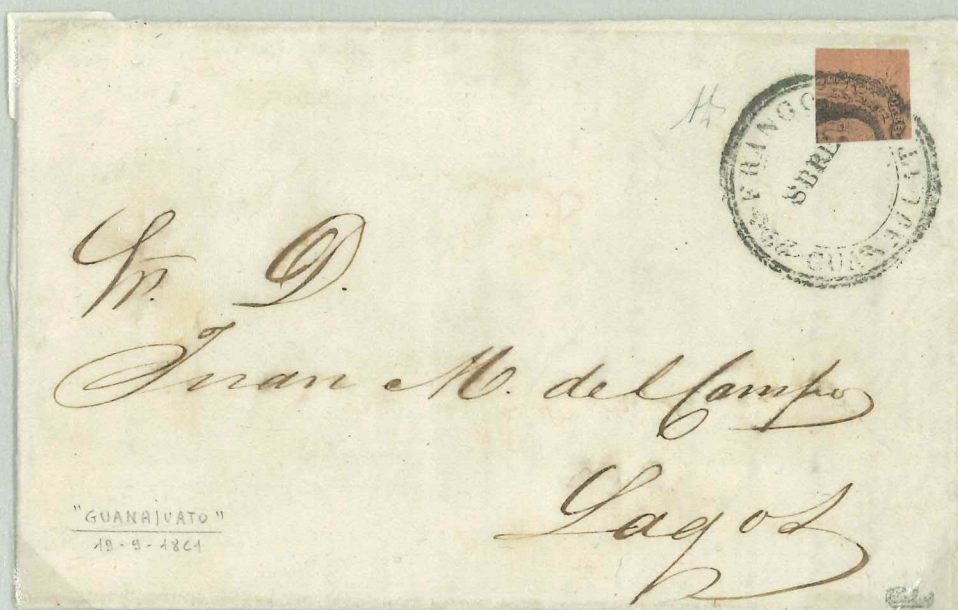 FRANCO
SBRE
GUANAJUATO
Sr. D.
Juan M. del Campo
Lagos
"GUANAJUATO"
19-9-1861